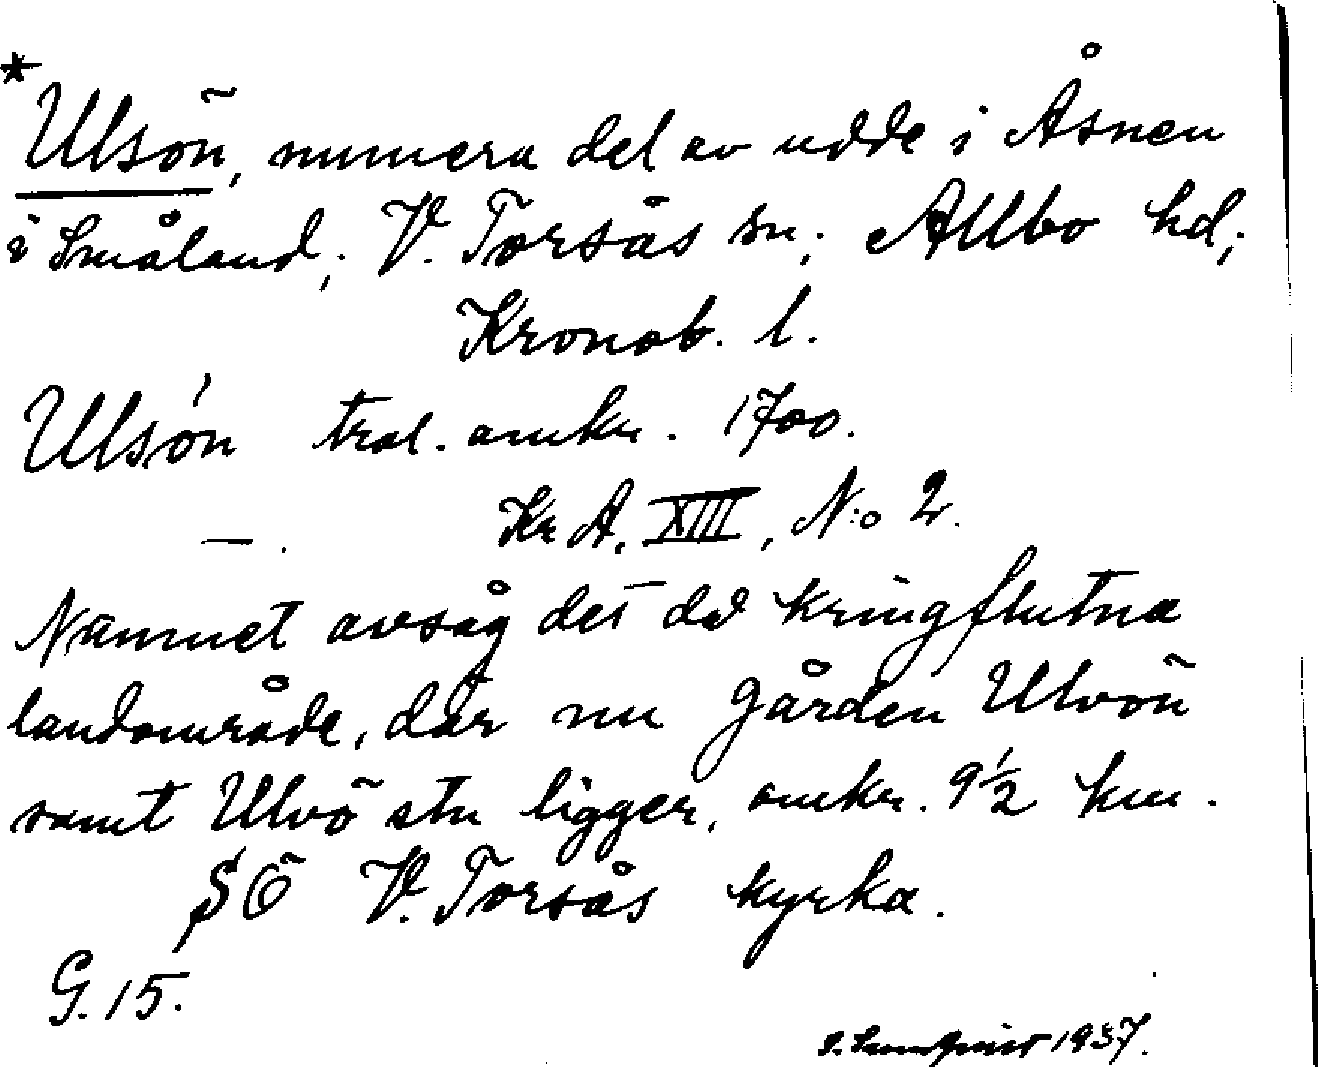 *Ulsön, numera del av udde i Åsnen
i Småland; V. Torsås sn; Allbo hd;
Kronob. l.
Ulsón trol. omkr. 1700.
—. Kr A. XIII, N:o 2.
Namnet avsåg det då kringflutna
landområde, där nu gården Ulvön
samt Ulvö stn ligger, omkr. 9½ km.
SÖ V. Torsås kyrka.
G. 15.
1937.